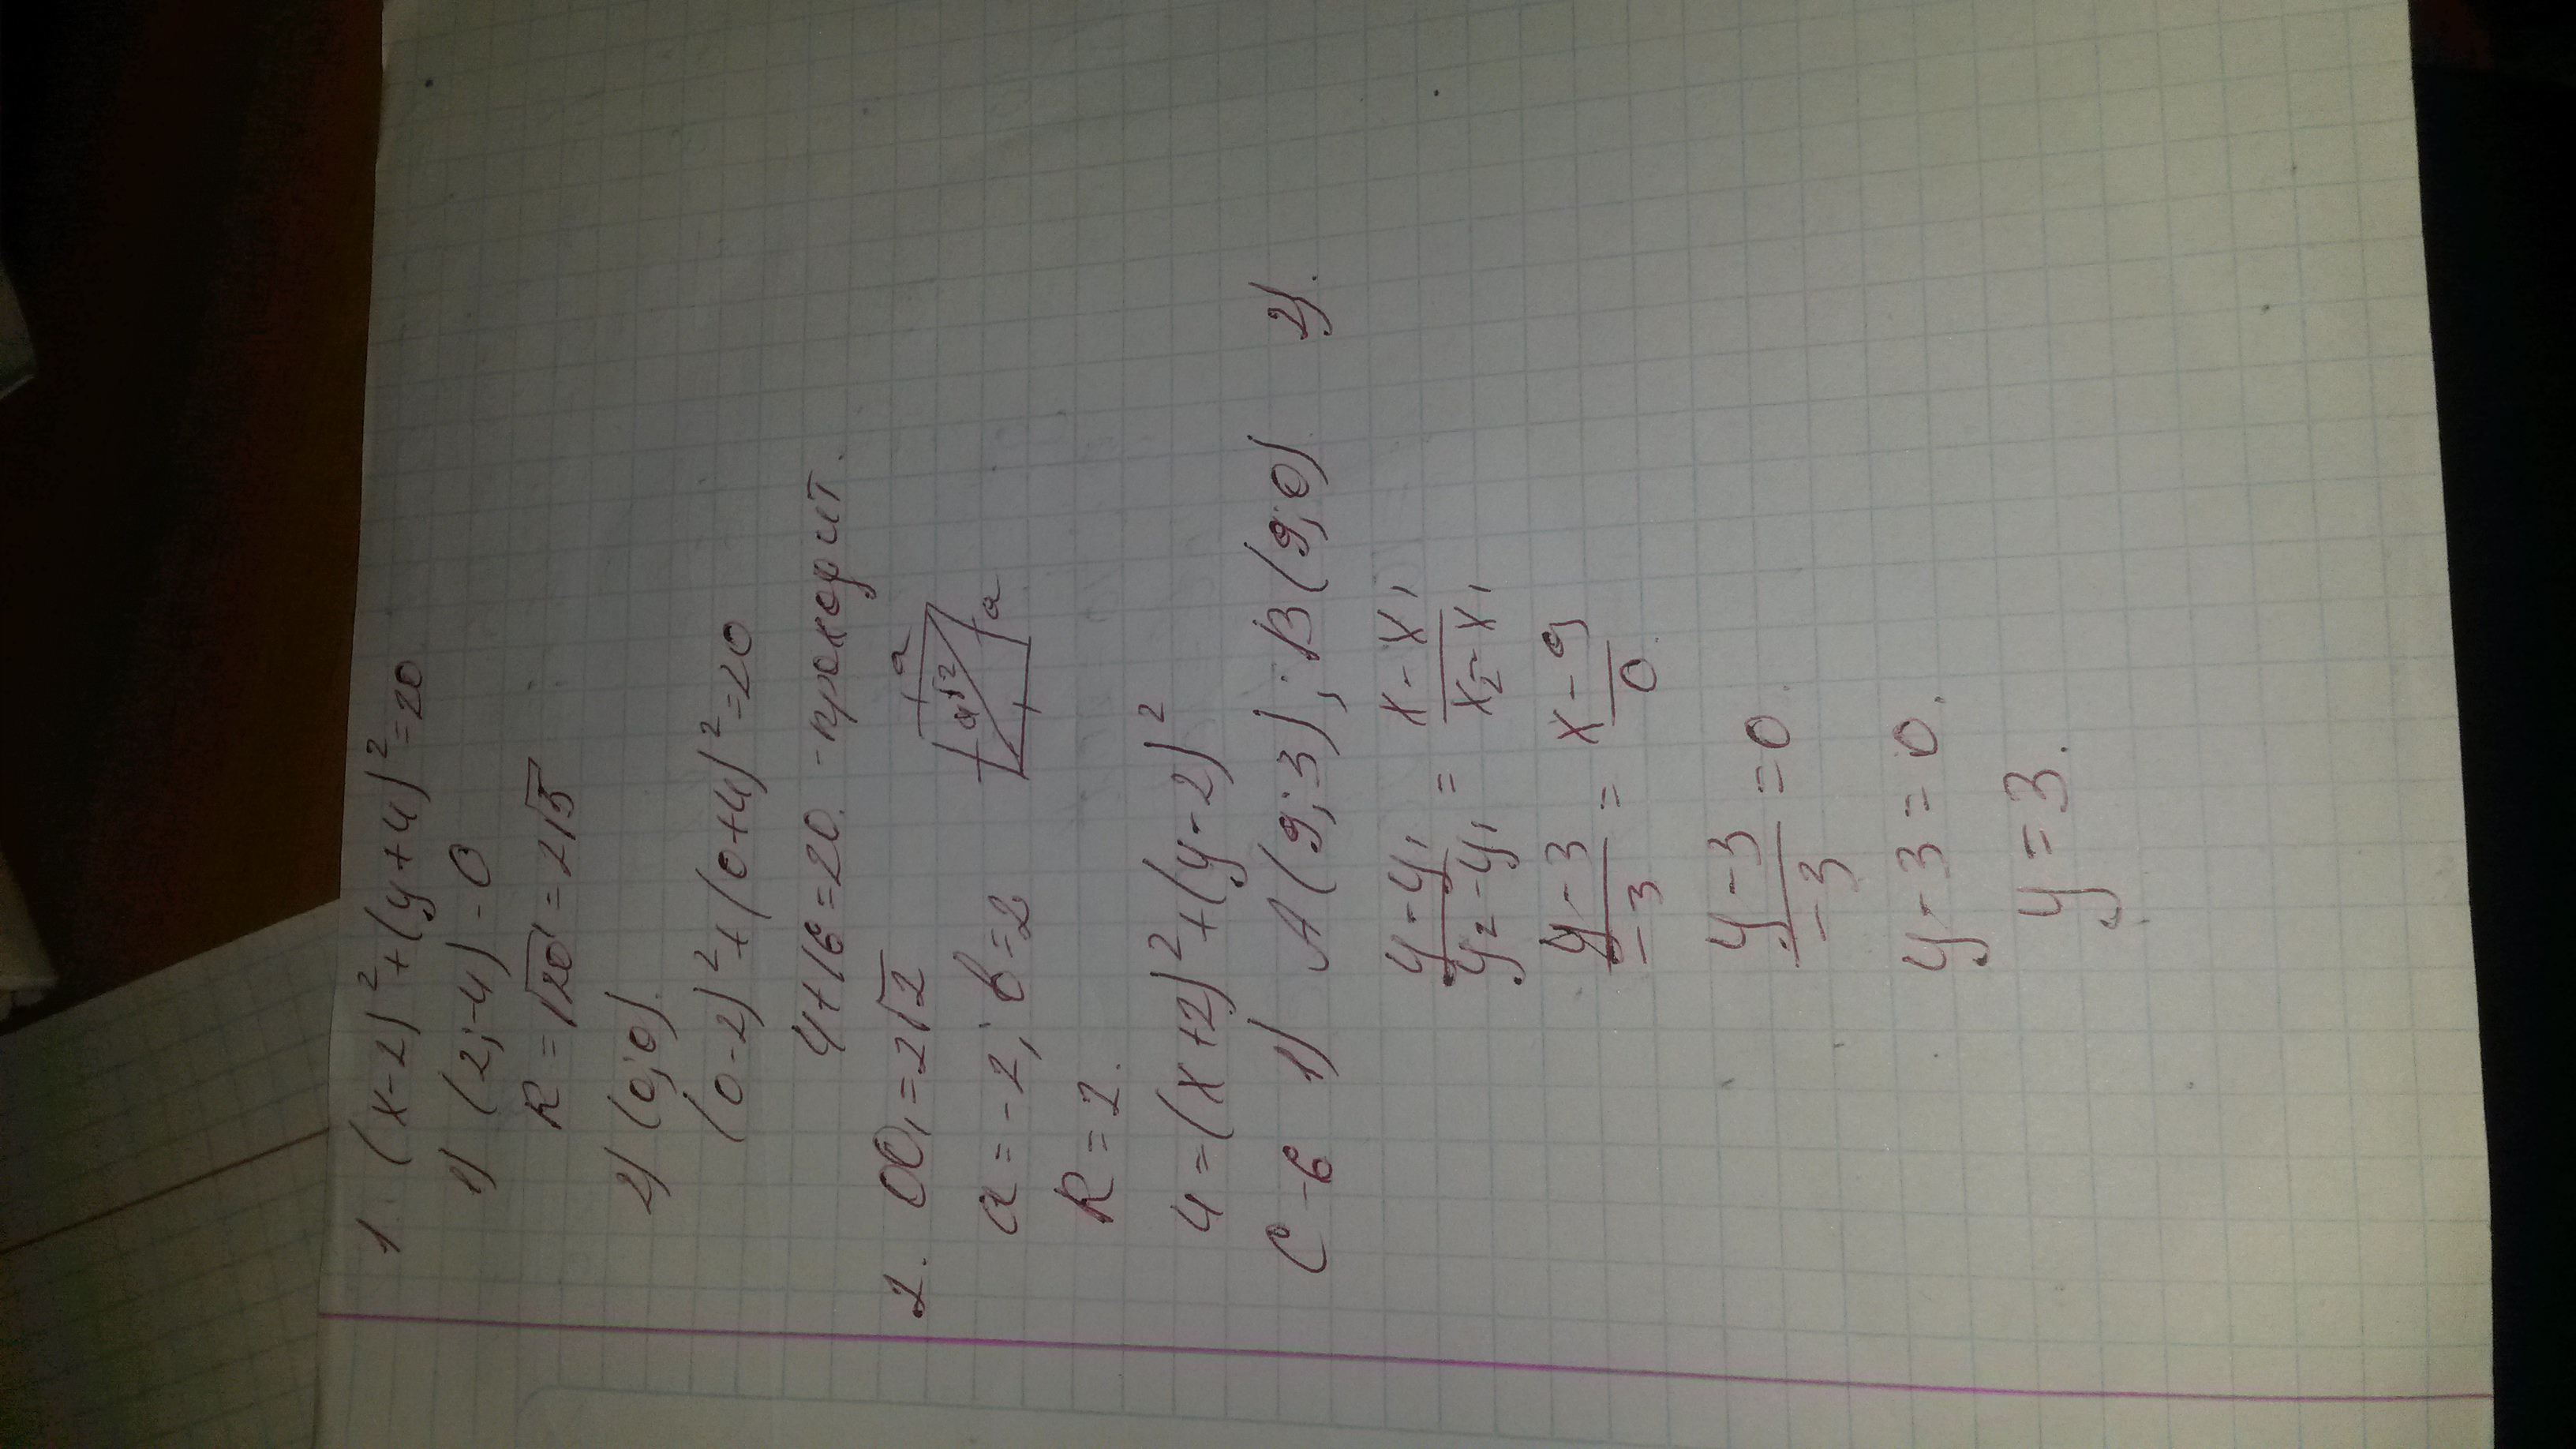 1. (x-2)²+(y+4)²=20
1) (2;-4)-O
R=√20=2√5
2) (0;0).
(0-2)²+(0+4)²=20
4+16=20. - проходит.
2. OO₁=2√2
a=-2; b=2
a
a√2
a
R=2.
4=(x+2)²+(y-2)²
С-6 1) A(9;3); B(9;0) 2).
y-y₁/y₂-y₁ = x-x₁/x₂-x₁
y-3/-3 = x-9/0.
y-3/-3 =0.
y-3=0.
y=3.